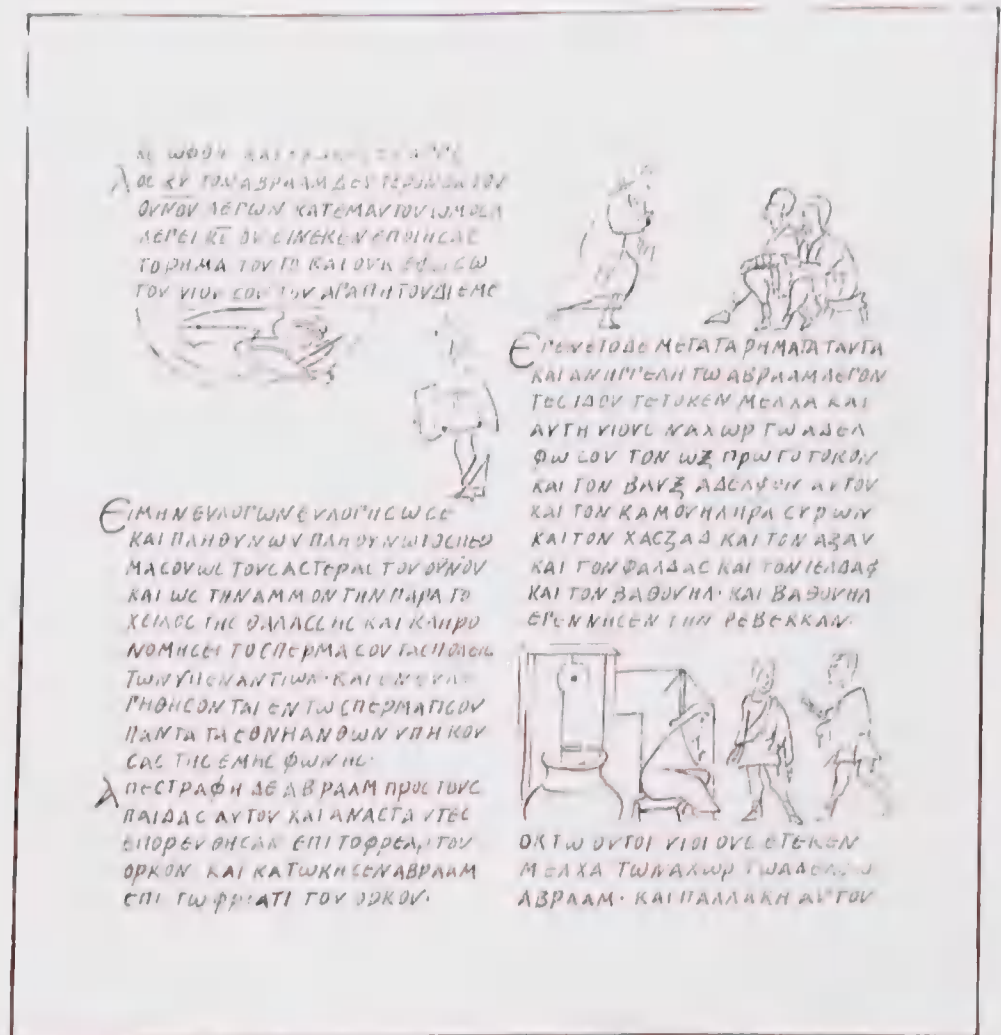 ΚΕ ΩΦΘΗ ΚΑΙ
ΛΟC ΚΥ ΤΟΝ ΑΒΡΑΑΜ ΔΕΥΤΕΡΟΝ ΕΚ ΤΟΥ
ΟΥΝΟΥ ΛΕΓΩΝ ΚΑΤΕΜΑΥΤΟΥ ΩΜΟCΑ
ΛΕΓΕΙ ΚC ΟΥ ΕΙΝΕΚΕΝ ΕΠΟΙΗCΑC
ΤΟ ΡΗΜΑ ΤΟΥΤΟ ΚΑΙ ΟΥΚ
ΤΟΥ ΥΙΟΥ CΟΥ ΤΟΥ ΑΓΑΠΗΤΟΥ ΔΙ ΕΜΕ
ΕΙ ΜΗΝ ΕΥΛΟΓΩΝ ΕΥΛΟΓΗCΩ CΕ
ΚΑΙ ΠΛΗΘΥΝΩΝ ΠΛΗΘΥΝΩ ΤΟ CΠΕΡ
ΜΑ CΟΥ ΩC ΤΟΥC ΑCΤΕΡΑC ΤΟΥ ΟΥΝΟΥ
ΚΑΙ ΩC ΤΗΝ ΑΜΜΟΝ ΤΗΝ ΠΑΡΑ ΤΟ
ΧΕΙΛΟC ΤΗC ΘΑΛΑCCΗC ΚΑΙ ΚΛΗΡΟ
ΝΟΜΗCΕΙ ΤΟ CΠΕΡΜΑ CΟΥ ΤΑC ΠΟΛΕΙC
ΤΩΝ ΥΠΕΝΑΝΤΙΩΝ· ΚΑΙ ΕΝΕΥΛΟ
ΓΗΘΗCΟΝΤΑΙ ΕΝ ΤΩ CΠΕΡΜΑΤΙ CΟΥ
ΠΑΝΤΑ ΤΑ ΕΘΝΗ ΑΝΘΩΝ ΥΠΗΚΟΥ
CΑC ΤΗC ΕΜΗC ΦΩΝΗC·
ΑΠΕCΤΡΑΦΗ ΔΕ ΑΒΡΑΑΜ ΠΡΟC ΤΟΥC
ΠΑΙΔΑC ΑΥΤΟΥ ΚΑΙ ΑΝΑCΤΑΝΤΕC
ΕΠΟΡΕΥΘΗCΑΝ ΕΠΙ ΤΟ ΦΡΕΑΡ ΤΟΥ
ΟΡΚΟΥ ΚΑΙ ΚΑΤΩΚΗCΕΝ ΑΒΡΑΑΜ
ΕΠΙ ΤΩ ΦΡΕΑΤΙ ΤΟΥ ΟΡΚΟΥ·
ΕΓΕΝΕΤΟ ΔΕ ΜΕΤΑ ΤΑ ΡΗΜΑΤΑ ΤΑΥΤΑ
ΚΑΙ ΑΝΗΓΓΕΛΗ ΤΩ ΑΒΡΑΑΜ ΛΕΓΟΝ
ΤΕC ΙΔΟΥ ΤΕΤΟΚΕΝ ΜΕΛΛΑ ΚΑΙ
ΑΥΤΗ ΥΙΟΥC ΝΑΧΩΡ ΤΩ ΑΔΕΛ
ΦΩ CΟΥ ΤΟΝ ΩΞ ΠΡΩΤΟΤΟΚΟΝ
ΚΑΙ ΤΟΝ ΒΑΥΞ ΑΔΕΛΦΟΝ ΑΥΤΟΥ
ΚΑΙ ΤΟΝ ΚΑΜΟΥΗΛ ΠΡΑ CΥΡΩΝ
ΚΑΙ ΤΟΝ ΧΑCΖΑΔ ΚΑΙ ΤΟΝ ΑΖΑΥ
ΚΑΙ ΤΟΝ ΦΑΛΔΑC ΚΑΙ ΤΟΝ ΙΕΛΔΑΦ
ΚΑΙ ΤΟΝ ΒΑΘΟΥΗΛ· ΚΑΙ ΒΑΘΟΥΗΛ
ΕΓΕΝΝΗCΕΝ ΤΗΝ ΡΕΒΕΚΚΑΝ·
ΟΚΤΩ ΟΥΤΟΙ ΥΙΟΙ ΟΥC ΕΤΕΚΕΝ
ΜΕΛΧΑ ΤΩ ΝΑΧΩΡ ΤΩ ΑΔΕΛΦΩ
ΑΒΡΑΑΜ· ΚΑΙ ΠΑΛΛΑΚΗ ΑΥΤΟΥ